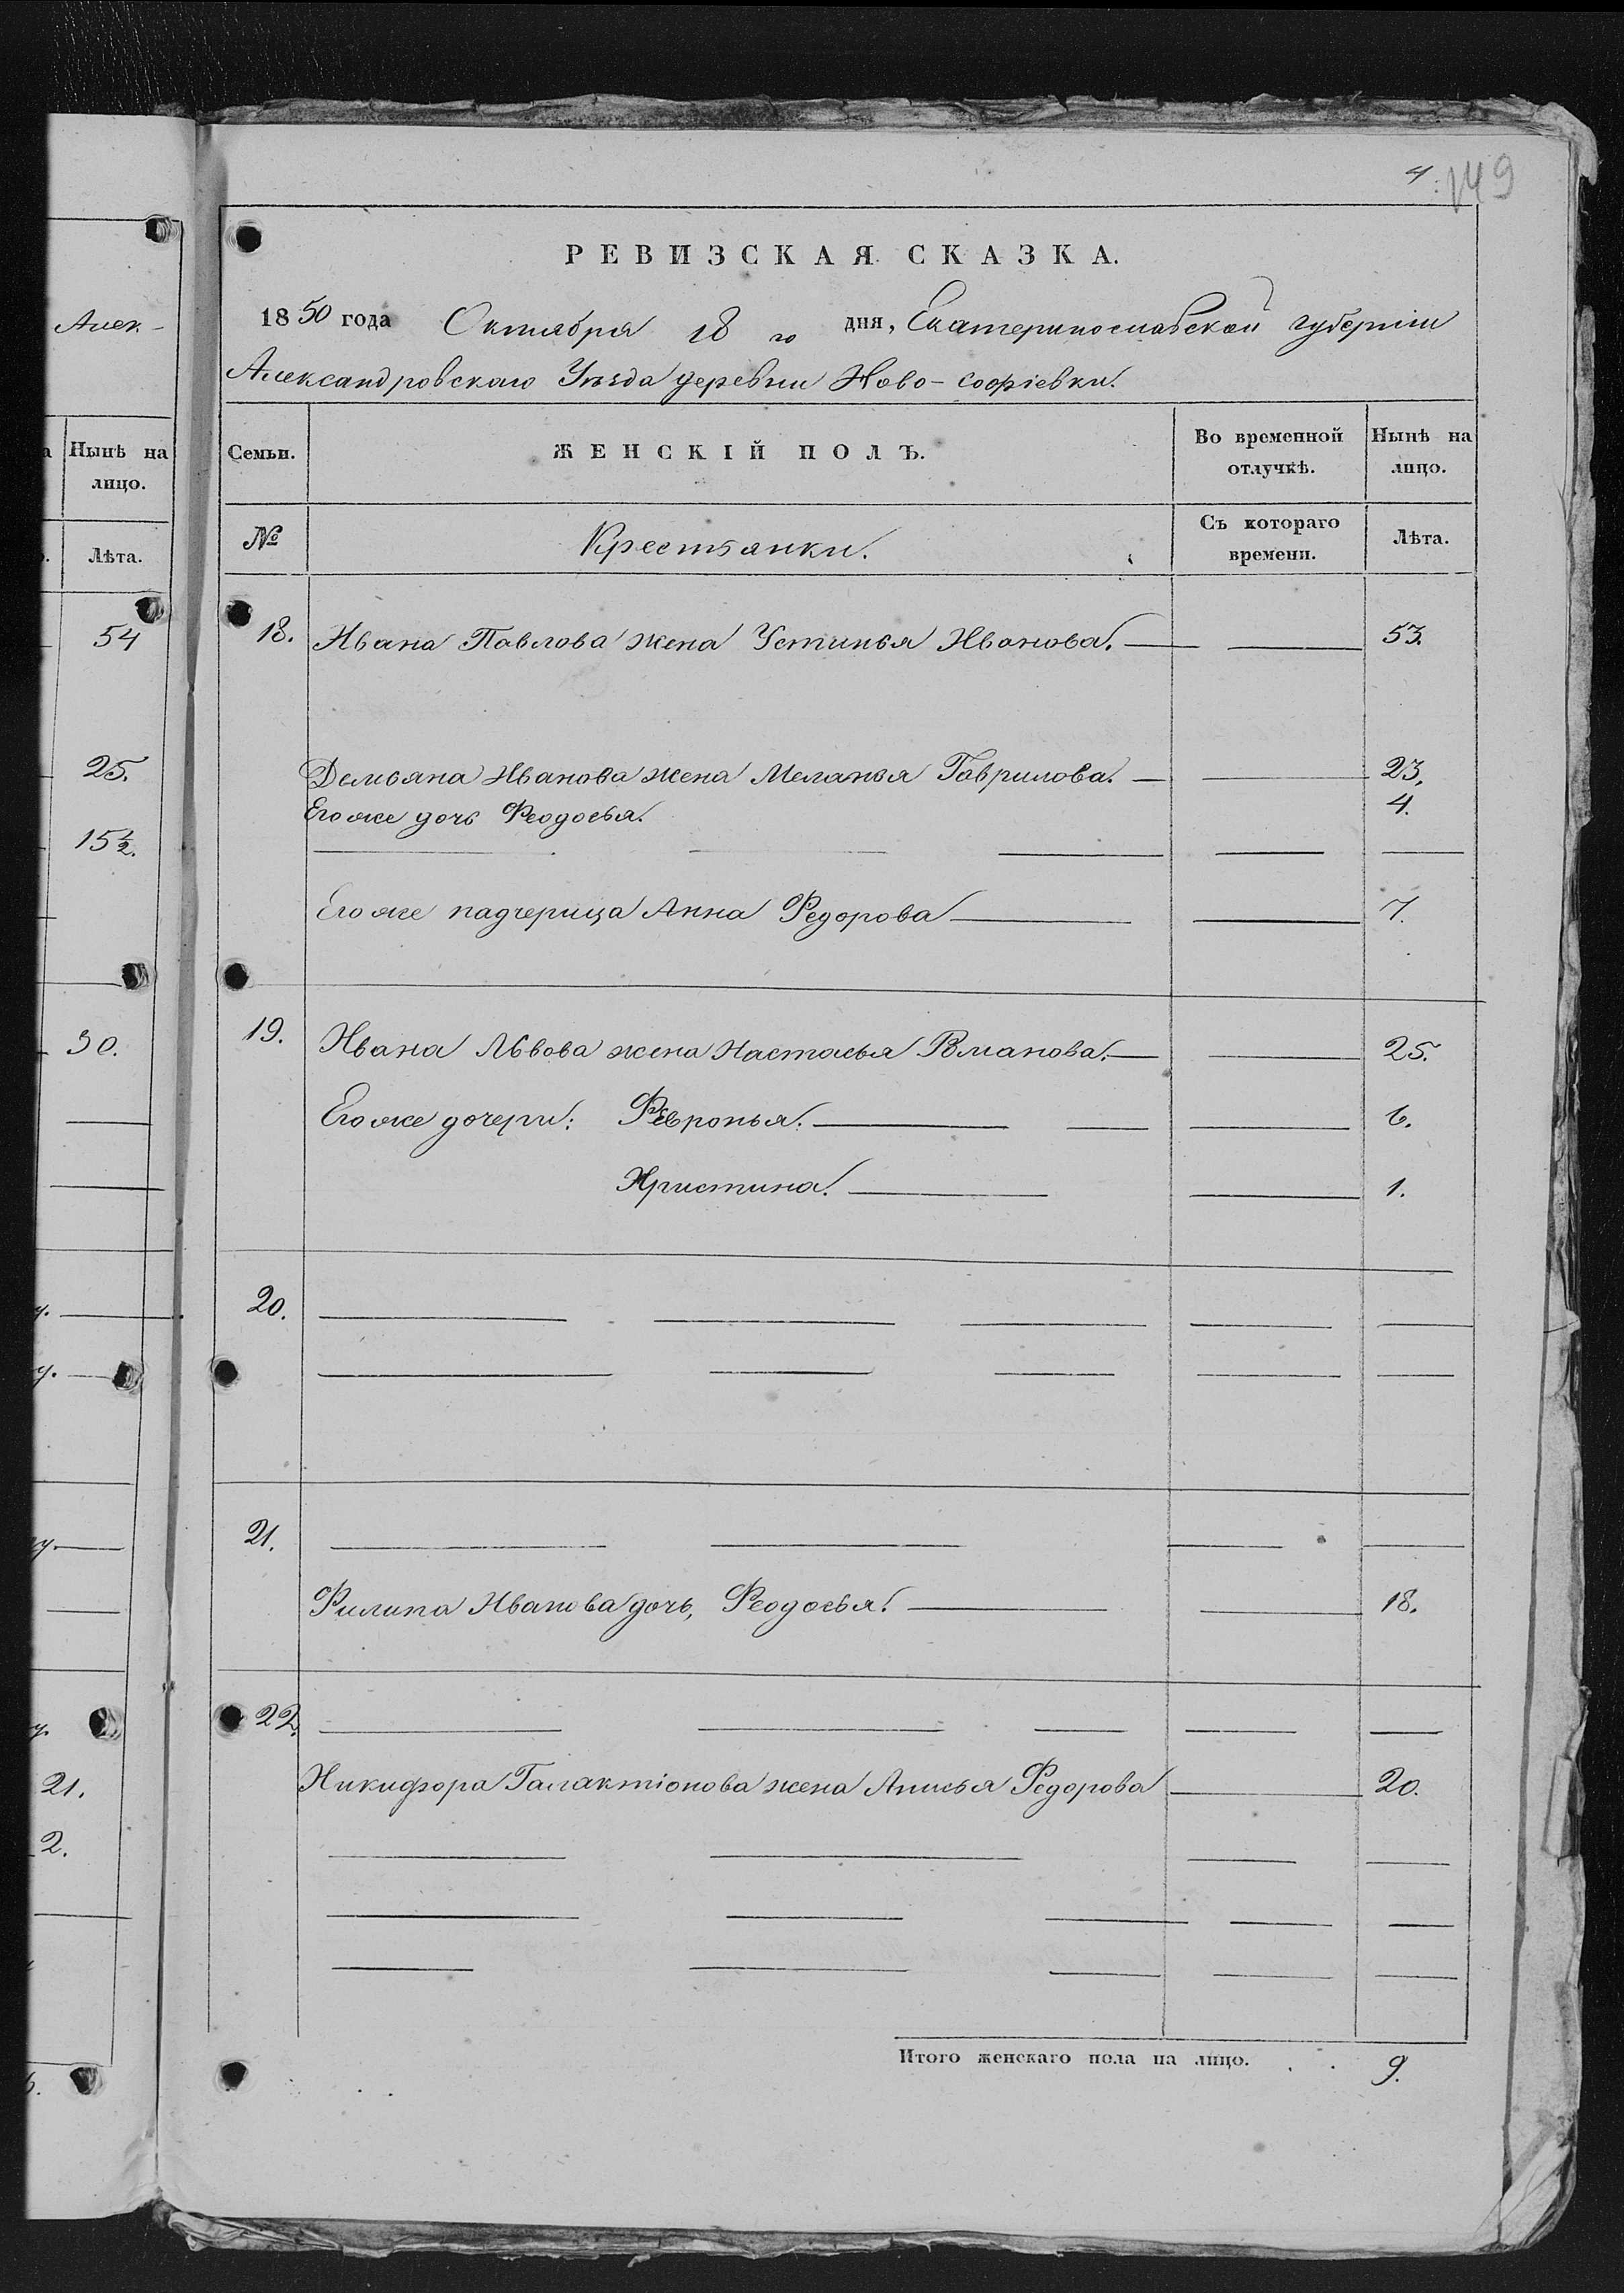 4.
149
РЕВИЗСКАЯ СКАЗКА.
1850 года Октября 18 го дня, Екатеринославской губерніи
Александровскаго Уѣзда деревни Ново-Софіевки.
Семьи.
ЖЕНСКІЙ ПОЛЪ.
Во временной отлучкѣ.
Нынѣ на лицо.
№
Крестьянки.
Съ котораго времени.
Лѣта.
18. Ивана Павлова жена Устинья Иванова. 53.
Демьяна Иванова жена Меланья Гаврилова. 23.
Его же дочь Феодосья. 4.
Его же падчерица Анна Федорова 7.
19. Ивана Львова жена Настасья Романова. 25.
Его же дочери: Февронья. 6.
Христина. 1.
20.
21.
Филипа Иванова дочь, Феодосья. 18.
22.
Никифора Галактіонова жена Анисья Федорова 20.
Итого женскаго пола на лицо. . . 9.
Алек-
Нынѣ на
лицо.
Лѣта.
54
25.
15½.
30.
у.
у.
у.
у.
21.
2.